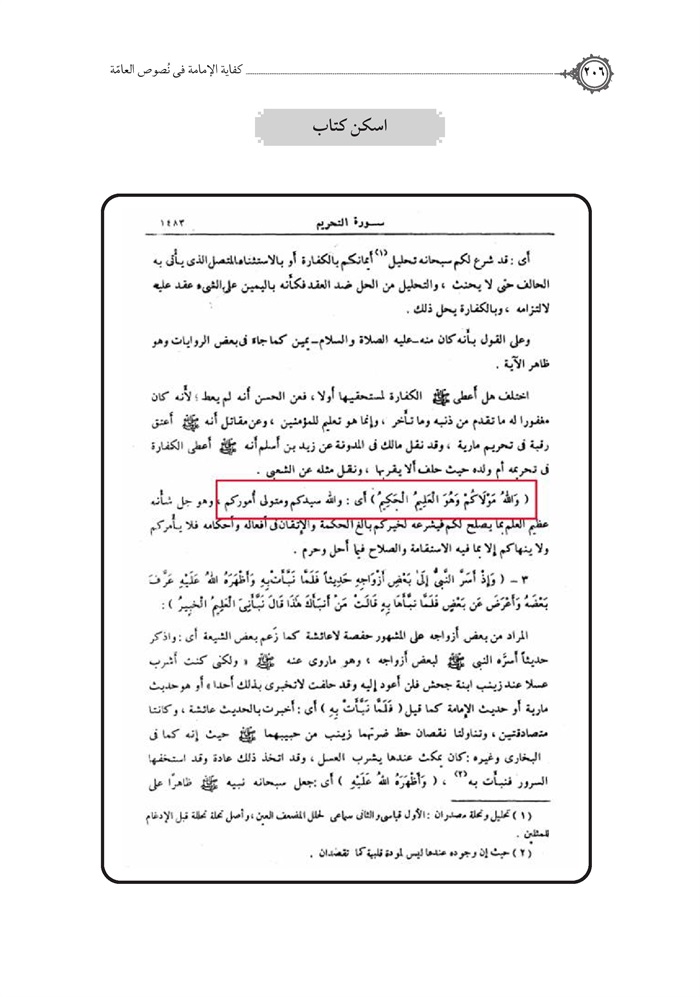 ٢٠٦ كفاية الإمامة فى نُصوص العامّة
اسكن كتاب
سـورة التحريم ١٤٨٣
أى : قد شرع لكم سبحانه تحليل(١) أيمانكم بالكفارة أو بالاستثناء المتصل الذى يأْتى به
الحالف حتى لا يحنث ، والتحليل من الحل ضد العقد فكأنه باليمين على الشىء عقد عليه
لالتزامه ، وبالكفارة يحل ذلك .
وعلى القول بأَنه كان منه-عليه الصلاة والسلام-يمين كما جاءَ فى بعض الروايات وهو
ظاهر الآية .
اختلف هل أَعطى ﷺ الكفارة لمستحقيها أولا ، فعن الحسن أنه لم يعط ؛ لأَنه كان
مغفورا له ما تقدم من ذنبه وما تأَخر ، وإنما هو تعليم للمؤمنين ، وعن مقاتل أنه ﷺ أعتق
رقبة فى تحريم مارية ، وقد نقل مالك فى المدونة عن زيد بن أسلم أنه ﷺ أعطى الكفارة
فى تحريمه أم ولده حيث حلف ألا يقربها ، ونقل مثله عن الشعبى .
( وَاللهُ مَوْلَاكُمْ وَهُوَ الْعَلِيمُ الْحَكِيمُ ) أى : والله سيدكم ومتولى أُموركم ، وهو جل شأنه
عظيم العلم بما يصلح لكم فيشرعه لخيركم بالغ الحكمة والإتقان فى أفعاله وأحكامه فلا يأمركم
ولا ينهاكم إلا بما فيه الاستقامة والصلاح فيما أحل وحرم .
٣ - ( وَإِذْ أَسَرَّ النَّبِىُّ إِلَىٰ بَعْضِ أَزْوَاجِهِ حَدِيثاً فَلَمَّا نَبَّأَتْ بِهِ وَأَظْهَرَهُ اللهُ عَلَيْهِ عَرَّفَ
بَعْضَهُ وَأَعْرَضَ عَن بَعْضٍ فَلَمَّا نَبَّأَهَا بِهِ قَالَتْ مَنْ أَنبَأَكَ هَٰذَا قَالَ نَبَّأَنِىَ الْعَلِيمُ الْخَبِيرُ ) :
المراد من بعض أزواجه على المشهور حفصة لا عائشة كما زعم بعض الشيعة أى : واذكر
حديثاً أسرَّه النبى ﷺ لبعض أزواجه ، وهو ماروى عنه ﷺ « ولكنى كنت أشرب
عسلا عند زينب ابنة جحش فلن أعود إليه وقد حلفت لاتخبرى بذلك أحدا » أو هو حديث
مارية أو حديث الإمامة كما قيل ( فَلَمَّا نَبَّأَتْ بِهِ ) أى : أخبرت بالحديث عائشة ، وكانتا
متصادقتين ، وتناولتا نقصان حظ ضرتهما زينب من حبيبهما ﷺ حيث إنه كما فى
البخارى وغيره : كان يمكث عندها يشرب العسل ، وقد اتخذ ذلك عادة وقد استخفها
السرور فنبأت به(٢) ، ( وَأَظْهَرَهُ اللهُ عَلَيْهِ ) أى : جعل سبحانه نبيه ﷺ ظاهرًا على
(١) تحليل وتحلة مصدران : الأول قياسى والثانى سماعى لحلل المضعف العين ، وأصل تحلة تحللة قبل الإدغام
للمثلين .
(٢) حيث إن وجوده عندها ليس لمودة قلبية كما تقصدان .